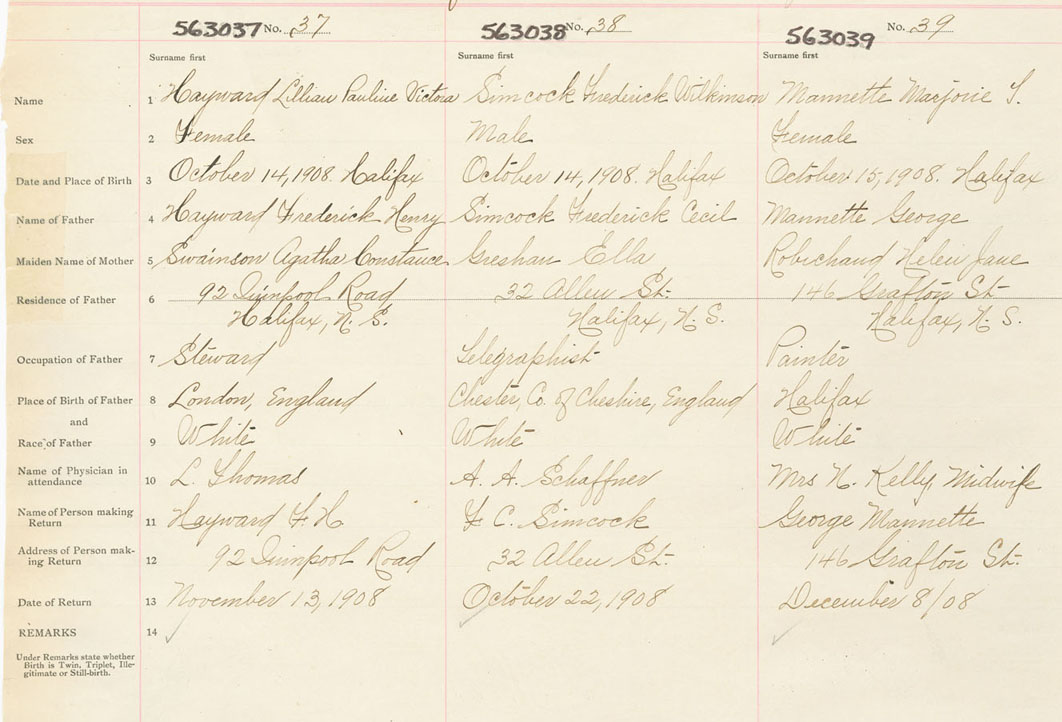 563037 No. 37 563038 No. 38 563039 No. 39
Surname first Surname first Surname first
Name 1 Hayward Lillian Pauline Victora Simcock Frederick Wilkinson Mannette Marjorie
Sex 2 Female Male Female
Date and Place of Birth 3 October 14, 1908. Halifax October 14, 1908. Halifax October 15, 1908. Halifax
Name of Father 4 Hayward Frederick Henry Simcock Frederick Cecil Mannette George
Maiden Name of Mother 5 Swainson Agatha Constance Greshan Ella Robichaud Helen Jane
Residence of Father 6 92 Quinpool Road 32 Allen St. 146 Grafton St.
Halifax, N. S. Halifax, N. S. Halifax, N. S.
Occupation of Father 7 Steward Telegraphist Painter
Place of Birth of Father 8 London, England Chester, Co. of Cheshire, England Halifax
and
Race of Father 9 White White White
Name of Physician in
attendance 10 L. Thomas A. A. Schaffner Mrs N. Kelly, Midwife
Name of Person making
Return 11 Hayward F. H F C. Simcock George Mannette
Address of Person mak-
ing Return 12 92 Quinpool Road 32 Allen St. 146 Grafton St.
Date of Return 13 November 13, 1908 October 22, 1908 December 8/08
REMARKS 14
Under Remarks state whether
Birth is Twin, Triplet, Ille-
gitimate or Still-birth.